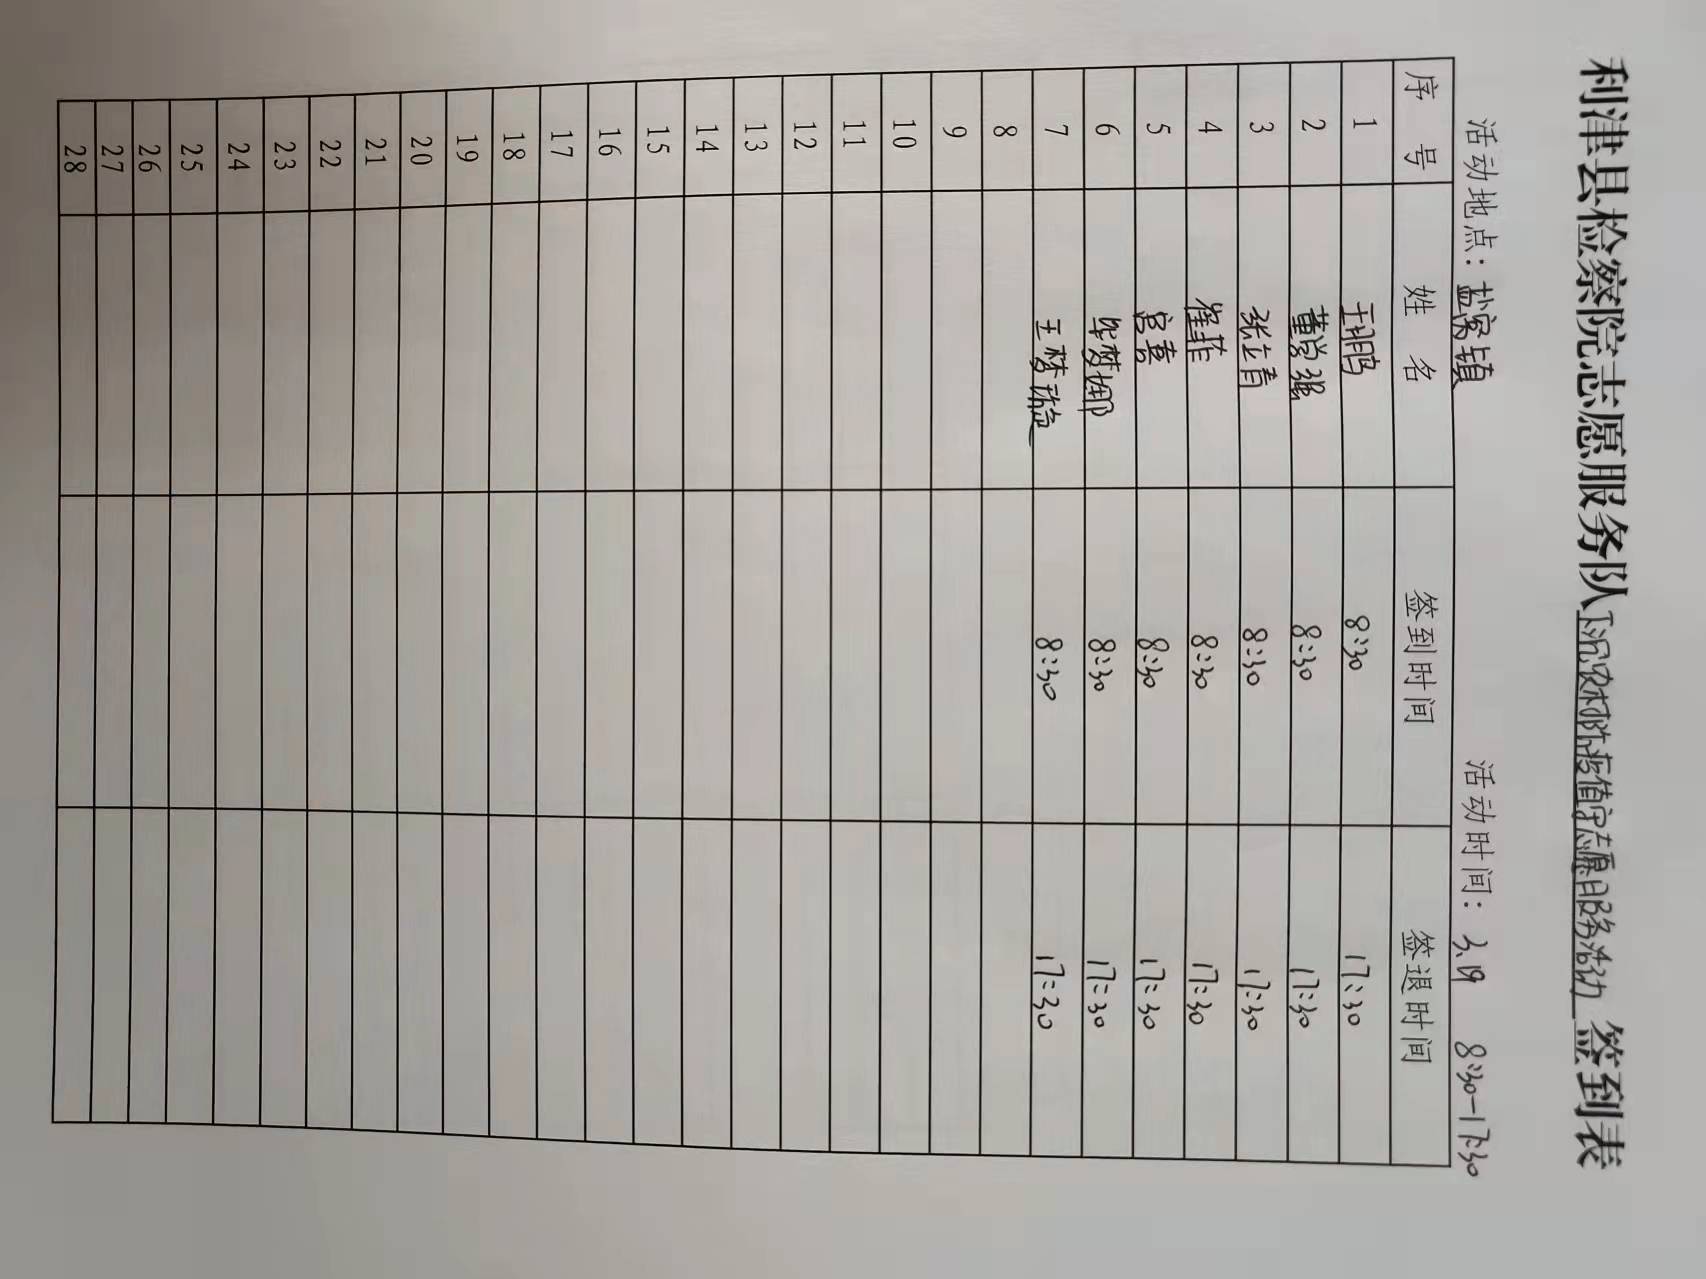 利津县检察院志愿服务队下沉农村防疫值守志愿服务活动 签到表
活动地点：盐窝镇 活动时间：3.19 8:30-17:30
序号 姓名 签到时间 签退时间
1 王鹏 8:30 17:30
2 董学强 8:30 17:30
3 张立青 8:30 17:30
4 崔菲 8:30 17:30
5 宫喜 8:30 17:30
6 毕梦娜 8:30 17:30
7 王梦璇 8:30 17:30
8
9
10
11
12
13
14
15
16
17
18
19
20
21
22
23
24
25
26
27
28